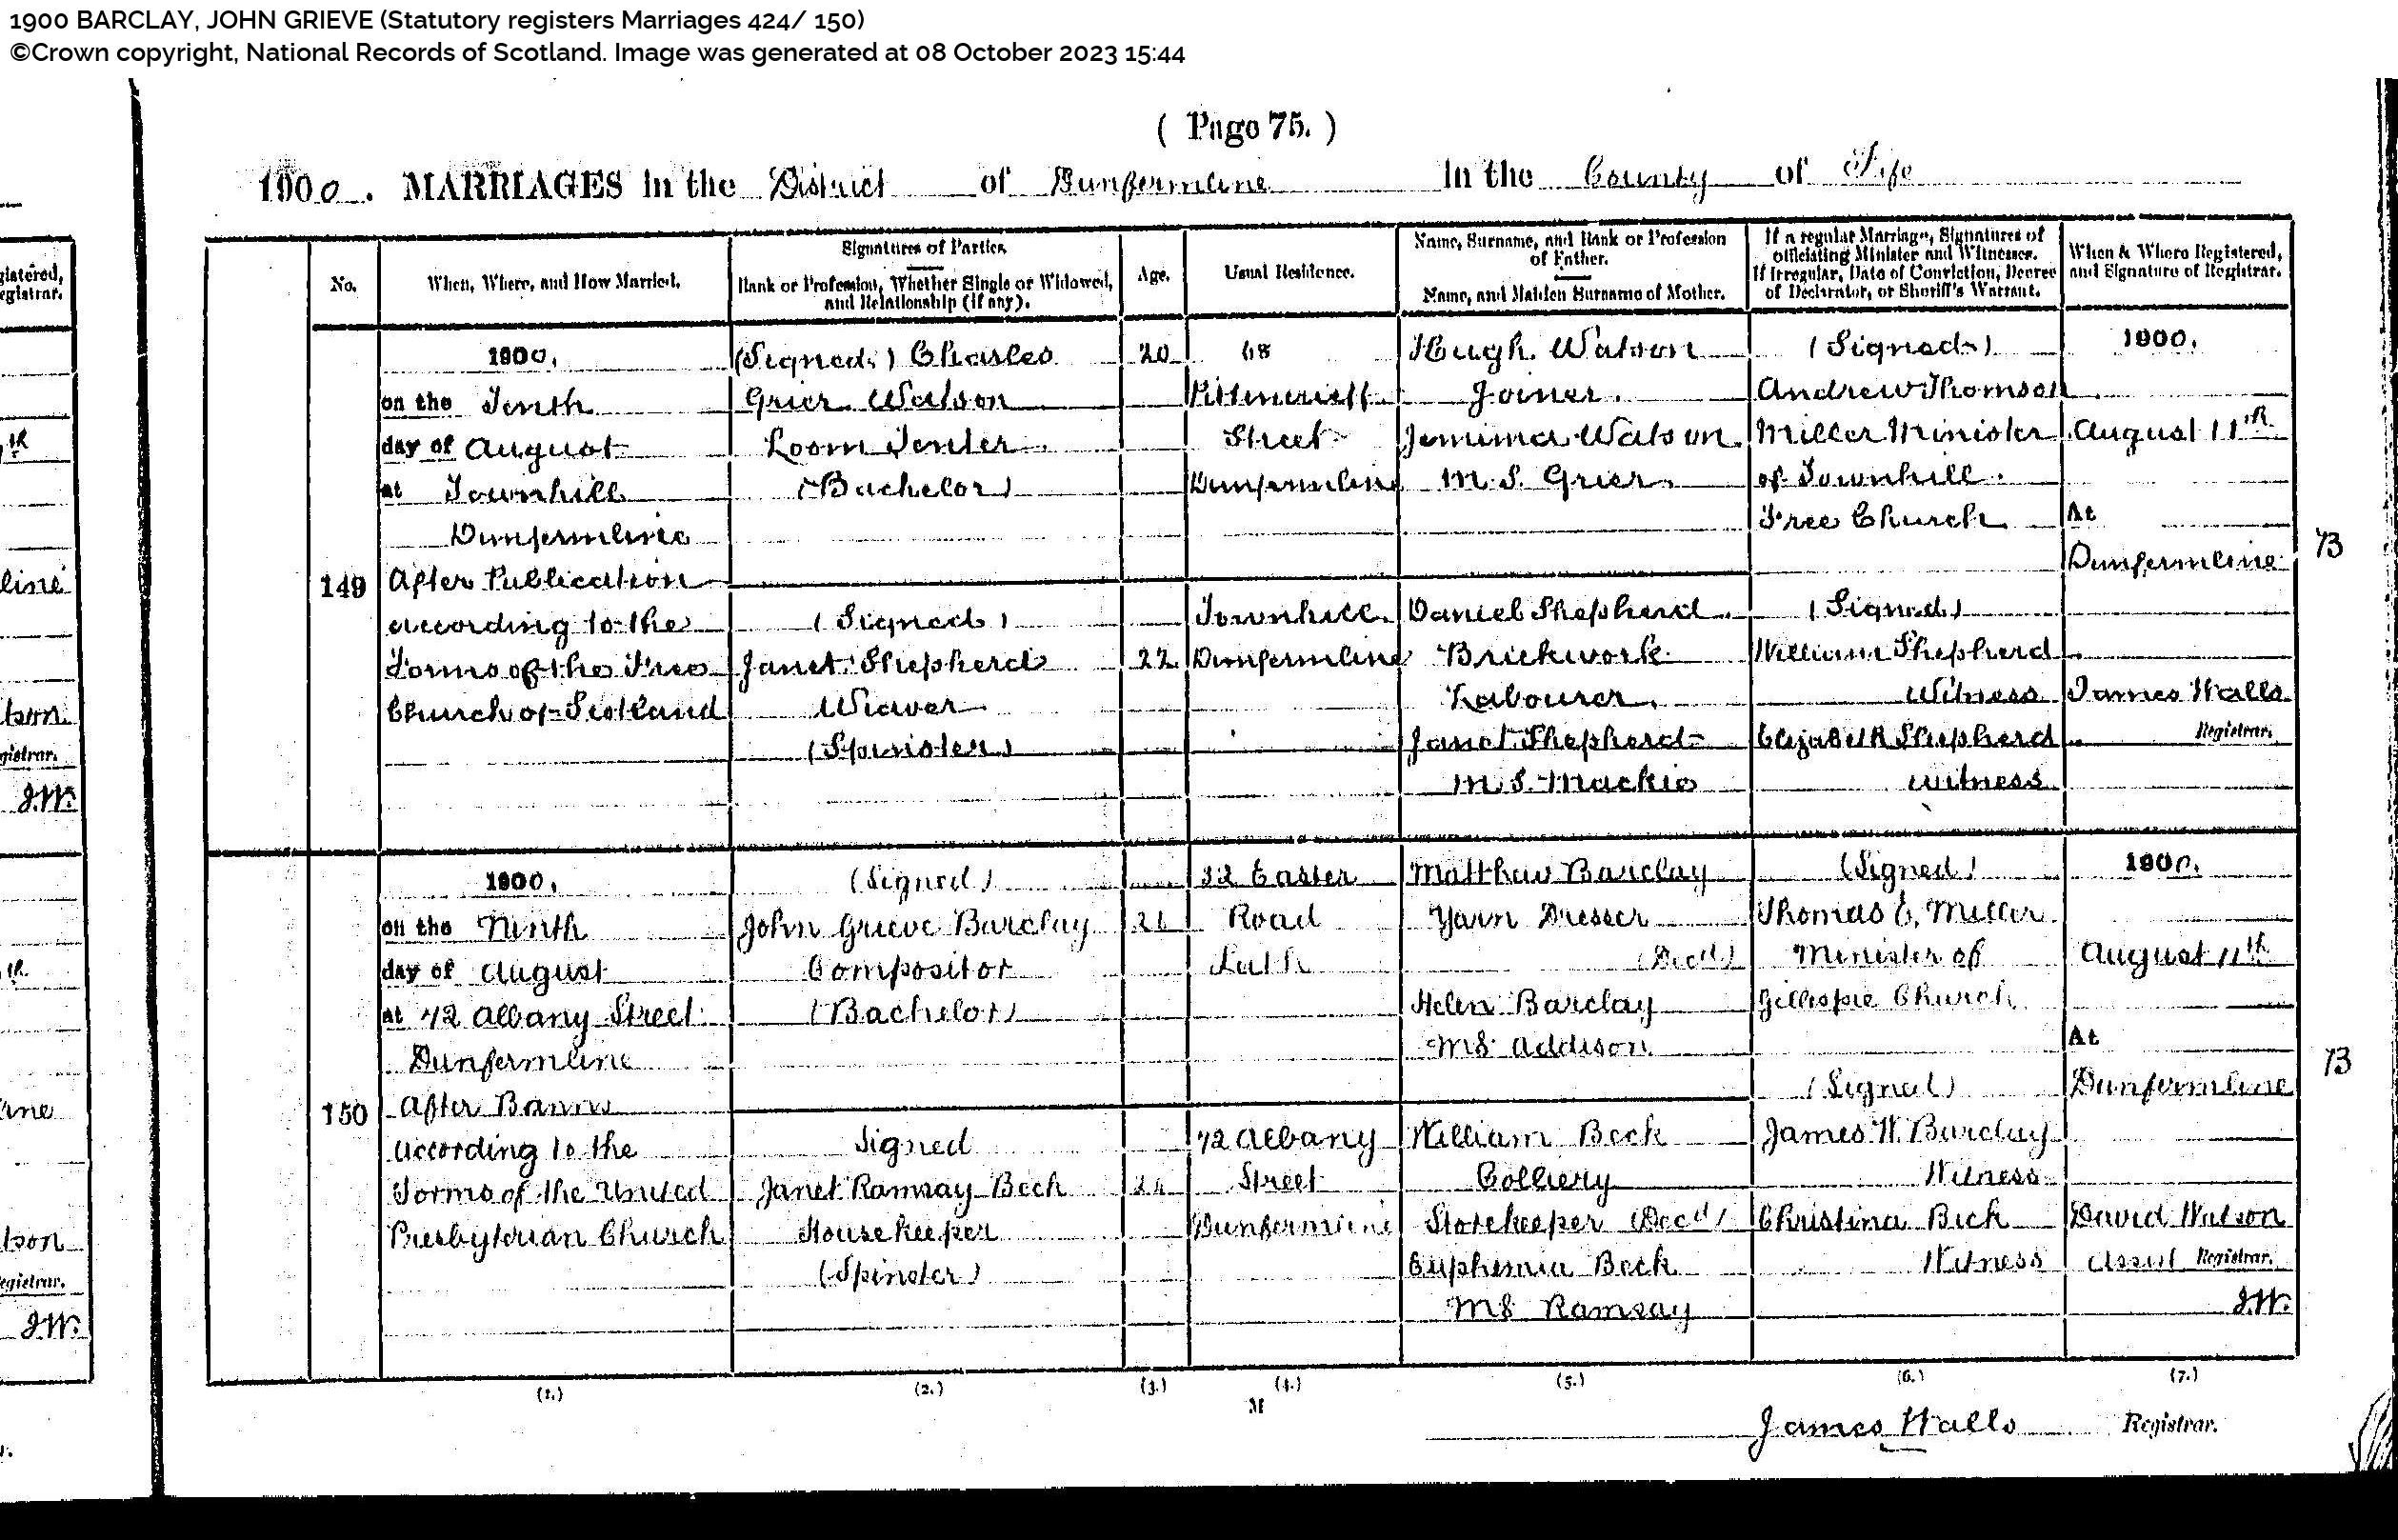 1900 BARCLAY, JOHN GRIEVE (Statutory registers Marriages 424/ 150)
©Crown copyright, National Records of Scotland. Image was generated at 08 October 2023 15:44
( Page 75. )
1900. MARRIAGES in the District of Dunfermline in the County of Fife
No.
When, Where, and How Married.
Signatures of Parties.
Rank or Profession, Whether Single or Widowed,
and Relationship (if any).
Age.
Usual Residence.
Name, Surname, and Rank or Profession
of Father.
Name, and Maiden Surname of Mother.
If a regular Marriage, Signatures of
officiating Minister and Witnesses.
If irregular, Date of Conviction, Decree
of Declarator, or Sheriff's Warrant.
When & Where Registered,
and Signature of Registrar.
149
1900.
on the Tenth
day of August
at Townhill
Dunfermline
After Publication
according to the
Forms of the Free
Church of Scotland
(Signed) Charles
Grier Watson
Loom Tenter
(Bachelor)
(Signed)
Janet Shepherd
Weaver
(Spinster)
20
22
68
Pittencrieff
Street
Dunfermline
Townhill
Dunfermline
Hugh Watson
Joiner.
Jemima Watson
M.S. Grier.
Daniel Shepherd
Brickwork
Labourer.
Janet Shepherd
M.S. Mackie
(Signed)
Andrew Thomson
Miller Minister
of Townhill
Free Church
(Signed)
William Shepherd
Witness
Elizabeth Shepherd
Witness
1900.
August 11th
At
Dunfermline
James Walls
Registrar.
73
150
1900.
on the Ninth
day of August
at 72 Albany Street
Dunfermline
After Banns
according to the
Forms of the United
Presbyterian Church
(Signed)
John Grieve Barclay
Compositor
(Bachelor)
Signed
Janet Ramsay Beck
Housekeeper
(Spinster)
26
32 Easter
Road
Leith
72 Albany
Street
Dunfermline
Matthew Barclay
Yarn Dresser
(Decd)
Helen Barclay
MS Addison
William Beck
Colliery
Storekeeper (Decd)
Euphemia Beck
MS Ramsay
(Signed)
Thomas E. Miller
Minister of
Gillespie Church
(Signed)
James W. Barclay
Witness
Christina Beck
Witness
1900.
August 11th
At
Dunfermline
David Watson
Assist Registrar.
J.W.
73
(1.) (2.) (3.) (4.) (5.) (6.) (7.)
M
James Walls Registrar.